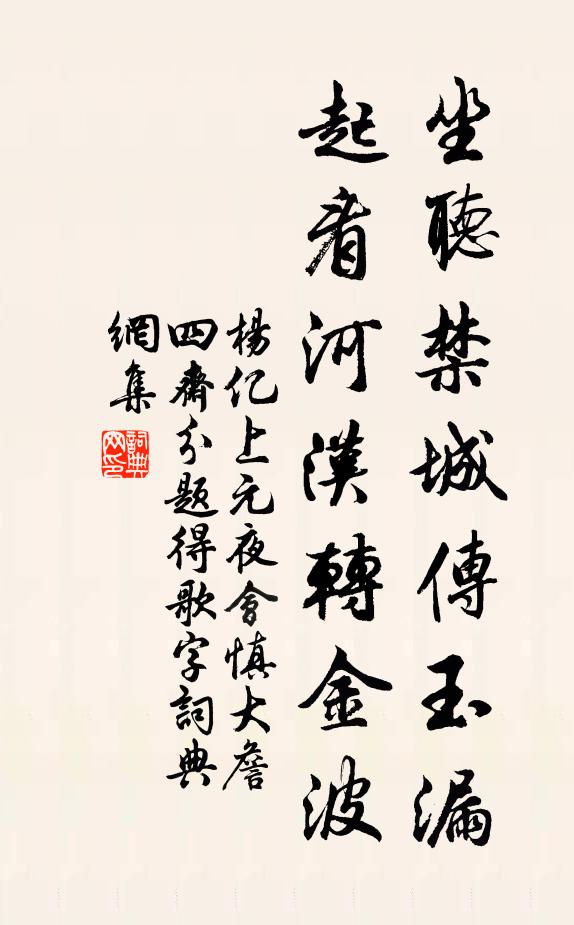 坐聽禁城傳玉漏
起看河漢轉金波
楊億上元夜會慎大詹
四齋分題得歌字詞典
網集
詞典
网印